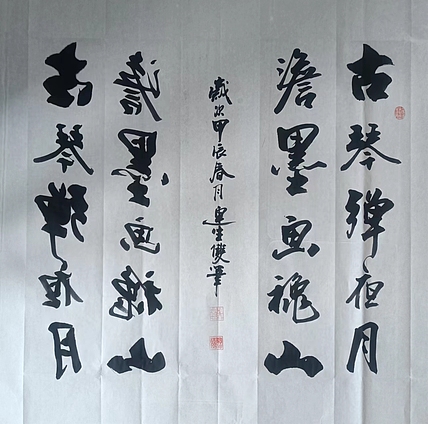 古琴弹夜月
澹墨画山
歲次甲辰春月生雙筆
澹墨画山
古琴弹夜月